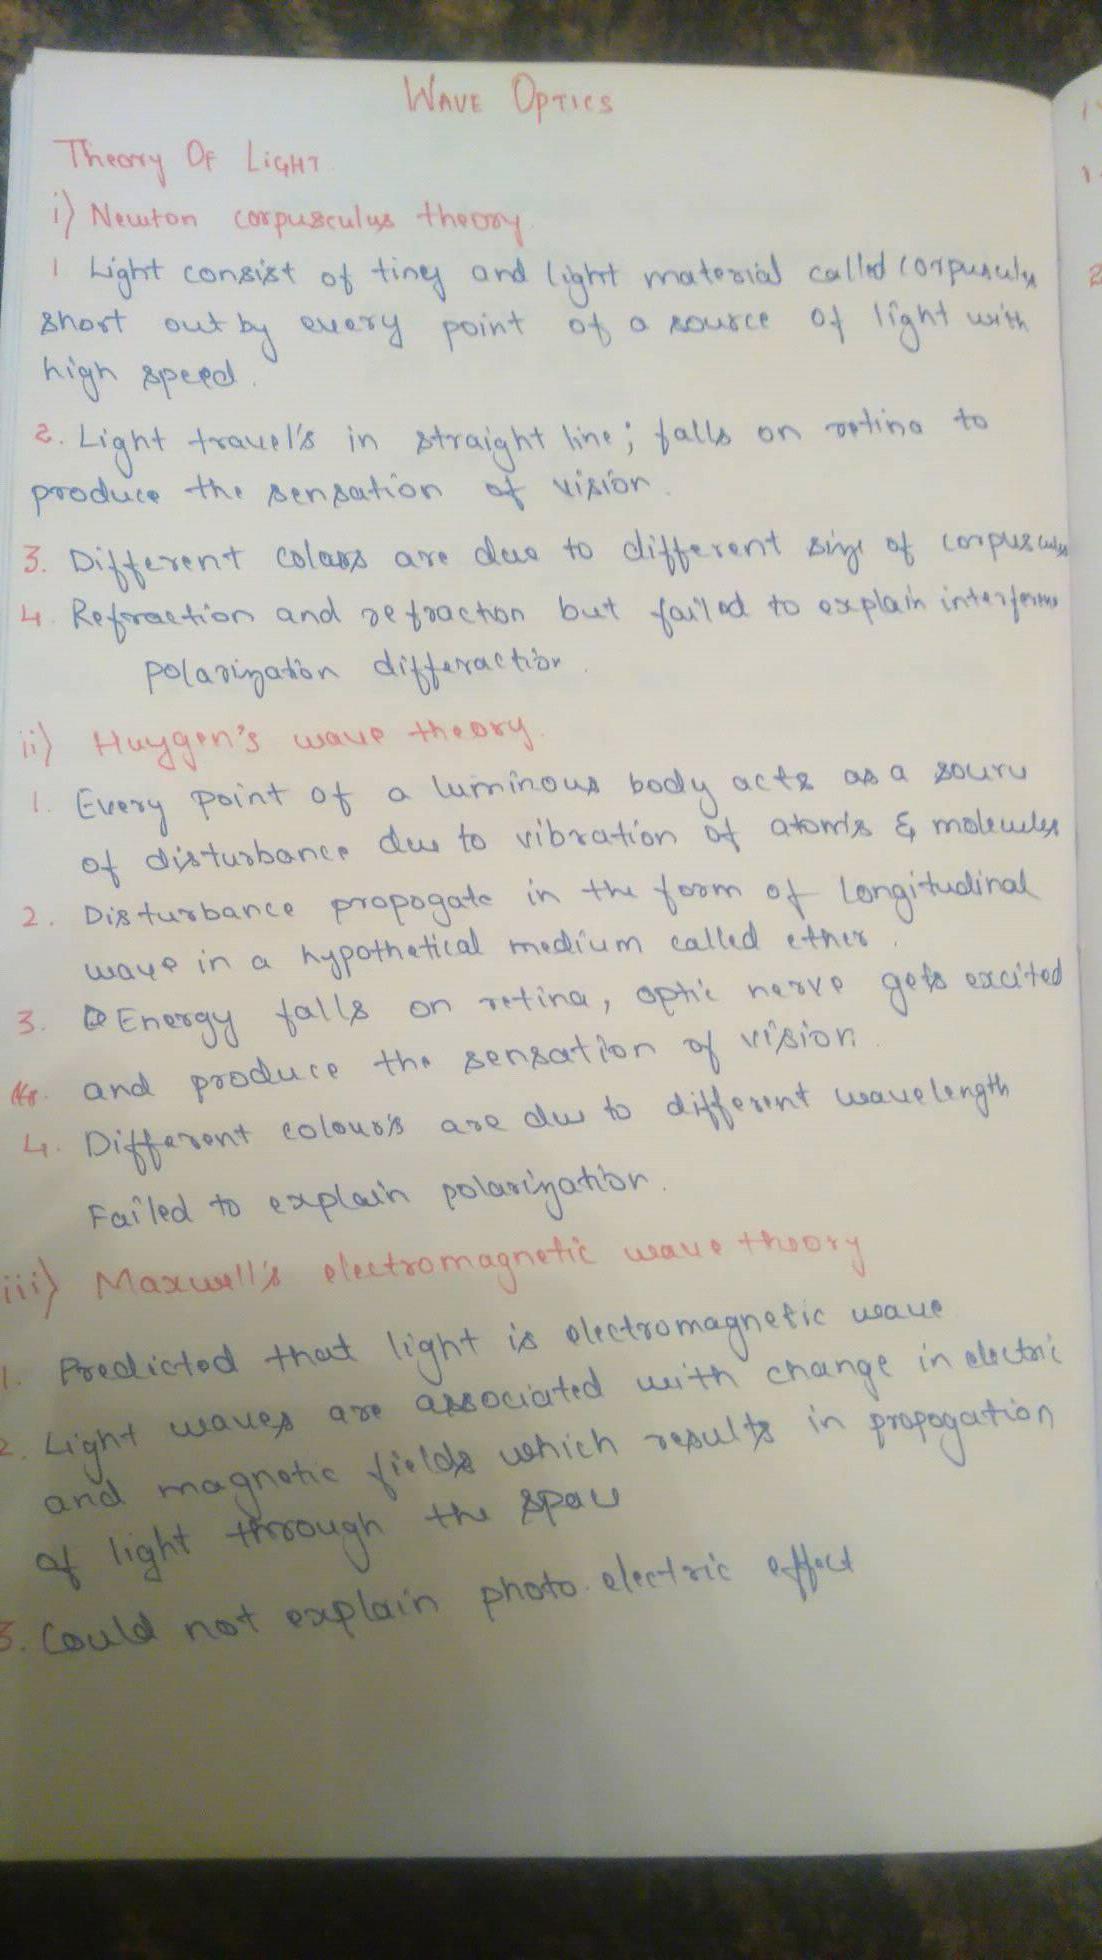 WAVE OPTICS
Theory OF LIGHT
i) Newton corpusculus theory
1 Light consist of tiney and light material called corpusculus
short out by every point of a source of light with
high speed.
2. Light travel's in straight line; falls on retina to
produce the sensation of vision.
3. Different colors are due to different size of corpusculus
4. Refraction and refraction but failed to explain interference
polarization differaction.
ii) Huygen's wave theory.
1. Every point of a luminous body acts as a source
of disturbance due to vibration of atom's & molecules
2. Disturbance propogate in the form of longitudinal
wave in a hypothetical medium called ether.
3. Energy falls on retina, optic nerve gets excited
and produce the sensation of vision.
4. Different colour's are due to different wavelength
Failed to explain polarization.
iii) Maxwell's electromagnetic wave theory
1. Predicted that light is electromagnetic wave
2. Light waves are associated with change in electric
and magnetic fields which results in propogation
of light through the space
3. Could not explain photo electric effect